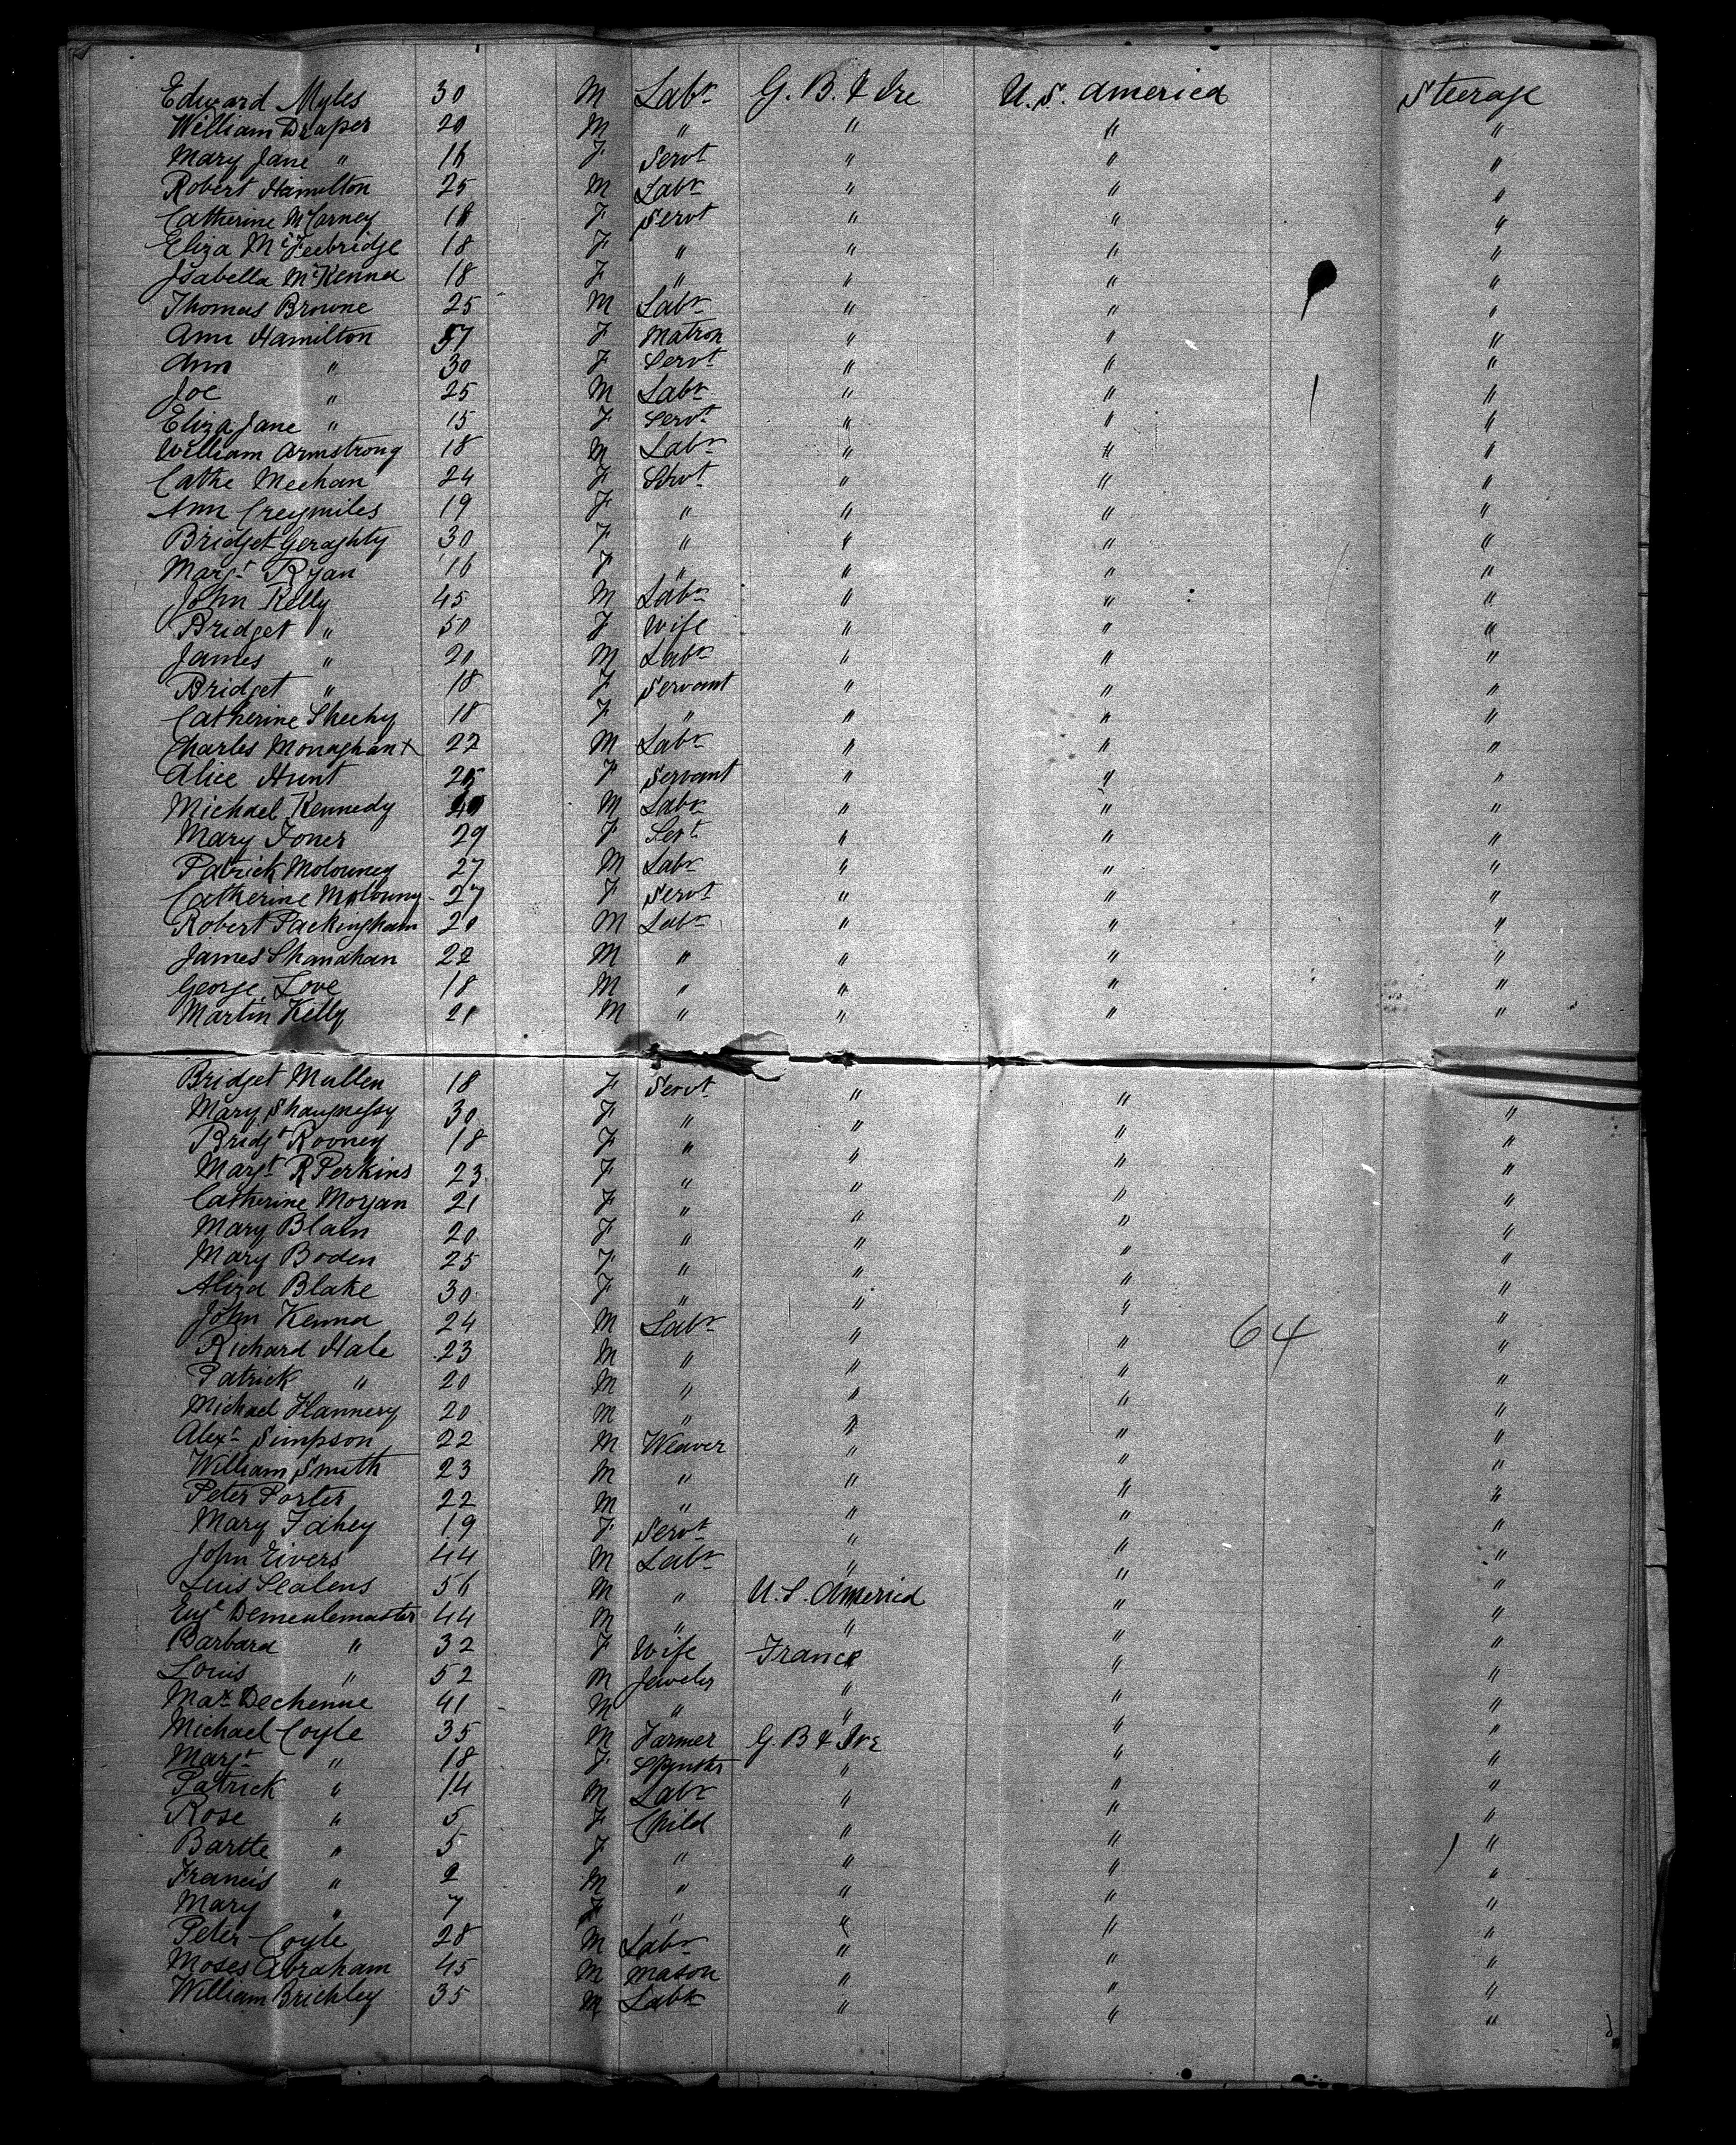 Edward Myles 30 M Labr G. B. & Ire U. S. America Steerage
William Draper 20 M " " " "
Mary Jane " 16 F Servt " " "
Robert Hamilton 25 M Labr " " "
Catherine McCarney 18 F Servt " " "
Eliza McFeebridge 18 F " " " "
Isabella McKenna 18 F " " " "
Thomas Browne 25 M Labr " " "
Ann Hamilton 57 F Matron " " "
Ann " 30 F Servt " " "
Joe " 25 M Labr " " "
Eliza Jane " 15 F Servt " " "
William Armstrong 18 M Labr " " "
Cathe Meehan 24 F Servt " " "
Ann Creymiles 19 F " " " "
Bridget Geraghty 30 F " " " "
Margt Ryan 16 F " " " "
John Kelly 45 M Labr " " "
Bridget " 50 F Wife " " "
James " 20 M Labr " " "
Bridget " 18 F Servant " " "
Catherine Sheehy 18 F " " " "
Charles Monaghan x 22 M Labr " " "
Alice Hunt 25 F Servant " " "
Michael Kennedy M Labr " " "
Mary Joner 29 F Sert " " "
Patrick Molouney 27 M Labr " " "
Catherine Molouny 27 F Servt " " "
Robert Packingham 20 M Labr " " "
James Shanahan 22 M " " " "
George Love 18 M " " " "
Martin Kelly 21 M " " " "
Bridget Mullen 18 F Servt " " "
Mary Shaugnessy 30 F " " " "
Bridgt Rooney 18 F " " " "
Margt R Perkins 23 F " " " "
Catherine Morgan 21 F " " " "
Mary Blain 20 F " " " "
Mary Boden 25 F " " " "
Aliza Blake 30 F " " " "
John Kenna 24 M Labr " " "
Richard Hale 23 M " " " 64 "
Patrick " 20 M " " " "
Michael Flannery 20 M " " " "
Alexr Simpson 22 M Weaver " " "
William Smith 23 M " " " "
Peter Porter 22 M " " " "
Mary Fahey 19 F Servt " " "
John Eivers 44 M Labr " " "
Luis Sealens 56 M " U. S. America " "
Euge Demeulemaster 44 M " " " "
Barbara " 32 F Wife France " "
Louis " 52 M Jeweler " " "
Max Dechenne 41 M " " " "
Michael Coyle 35 M Farmer G. B & Ire " "
Margt " 18 F Spynster " " "
Patrick " 14 M Labr " " "
Rose " 5 F Child " " "
Bartte " 5 F " " " "
Francis " 2 M " " " "
Mary " 7 F " " " "
Peter Coyle 28 M Labr " " "
Moses Abraham 45 M Mason " " "
William Brichley 35 M Labr " " "